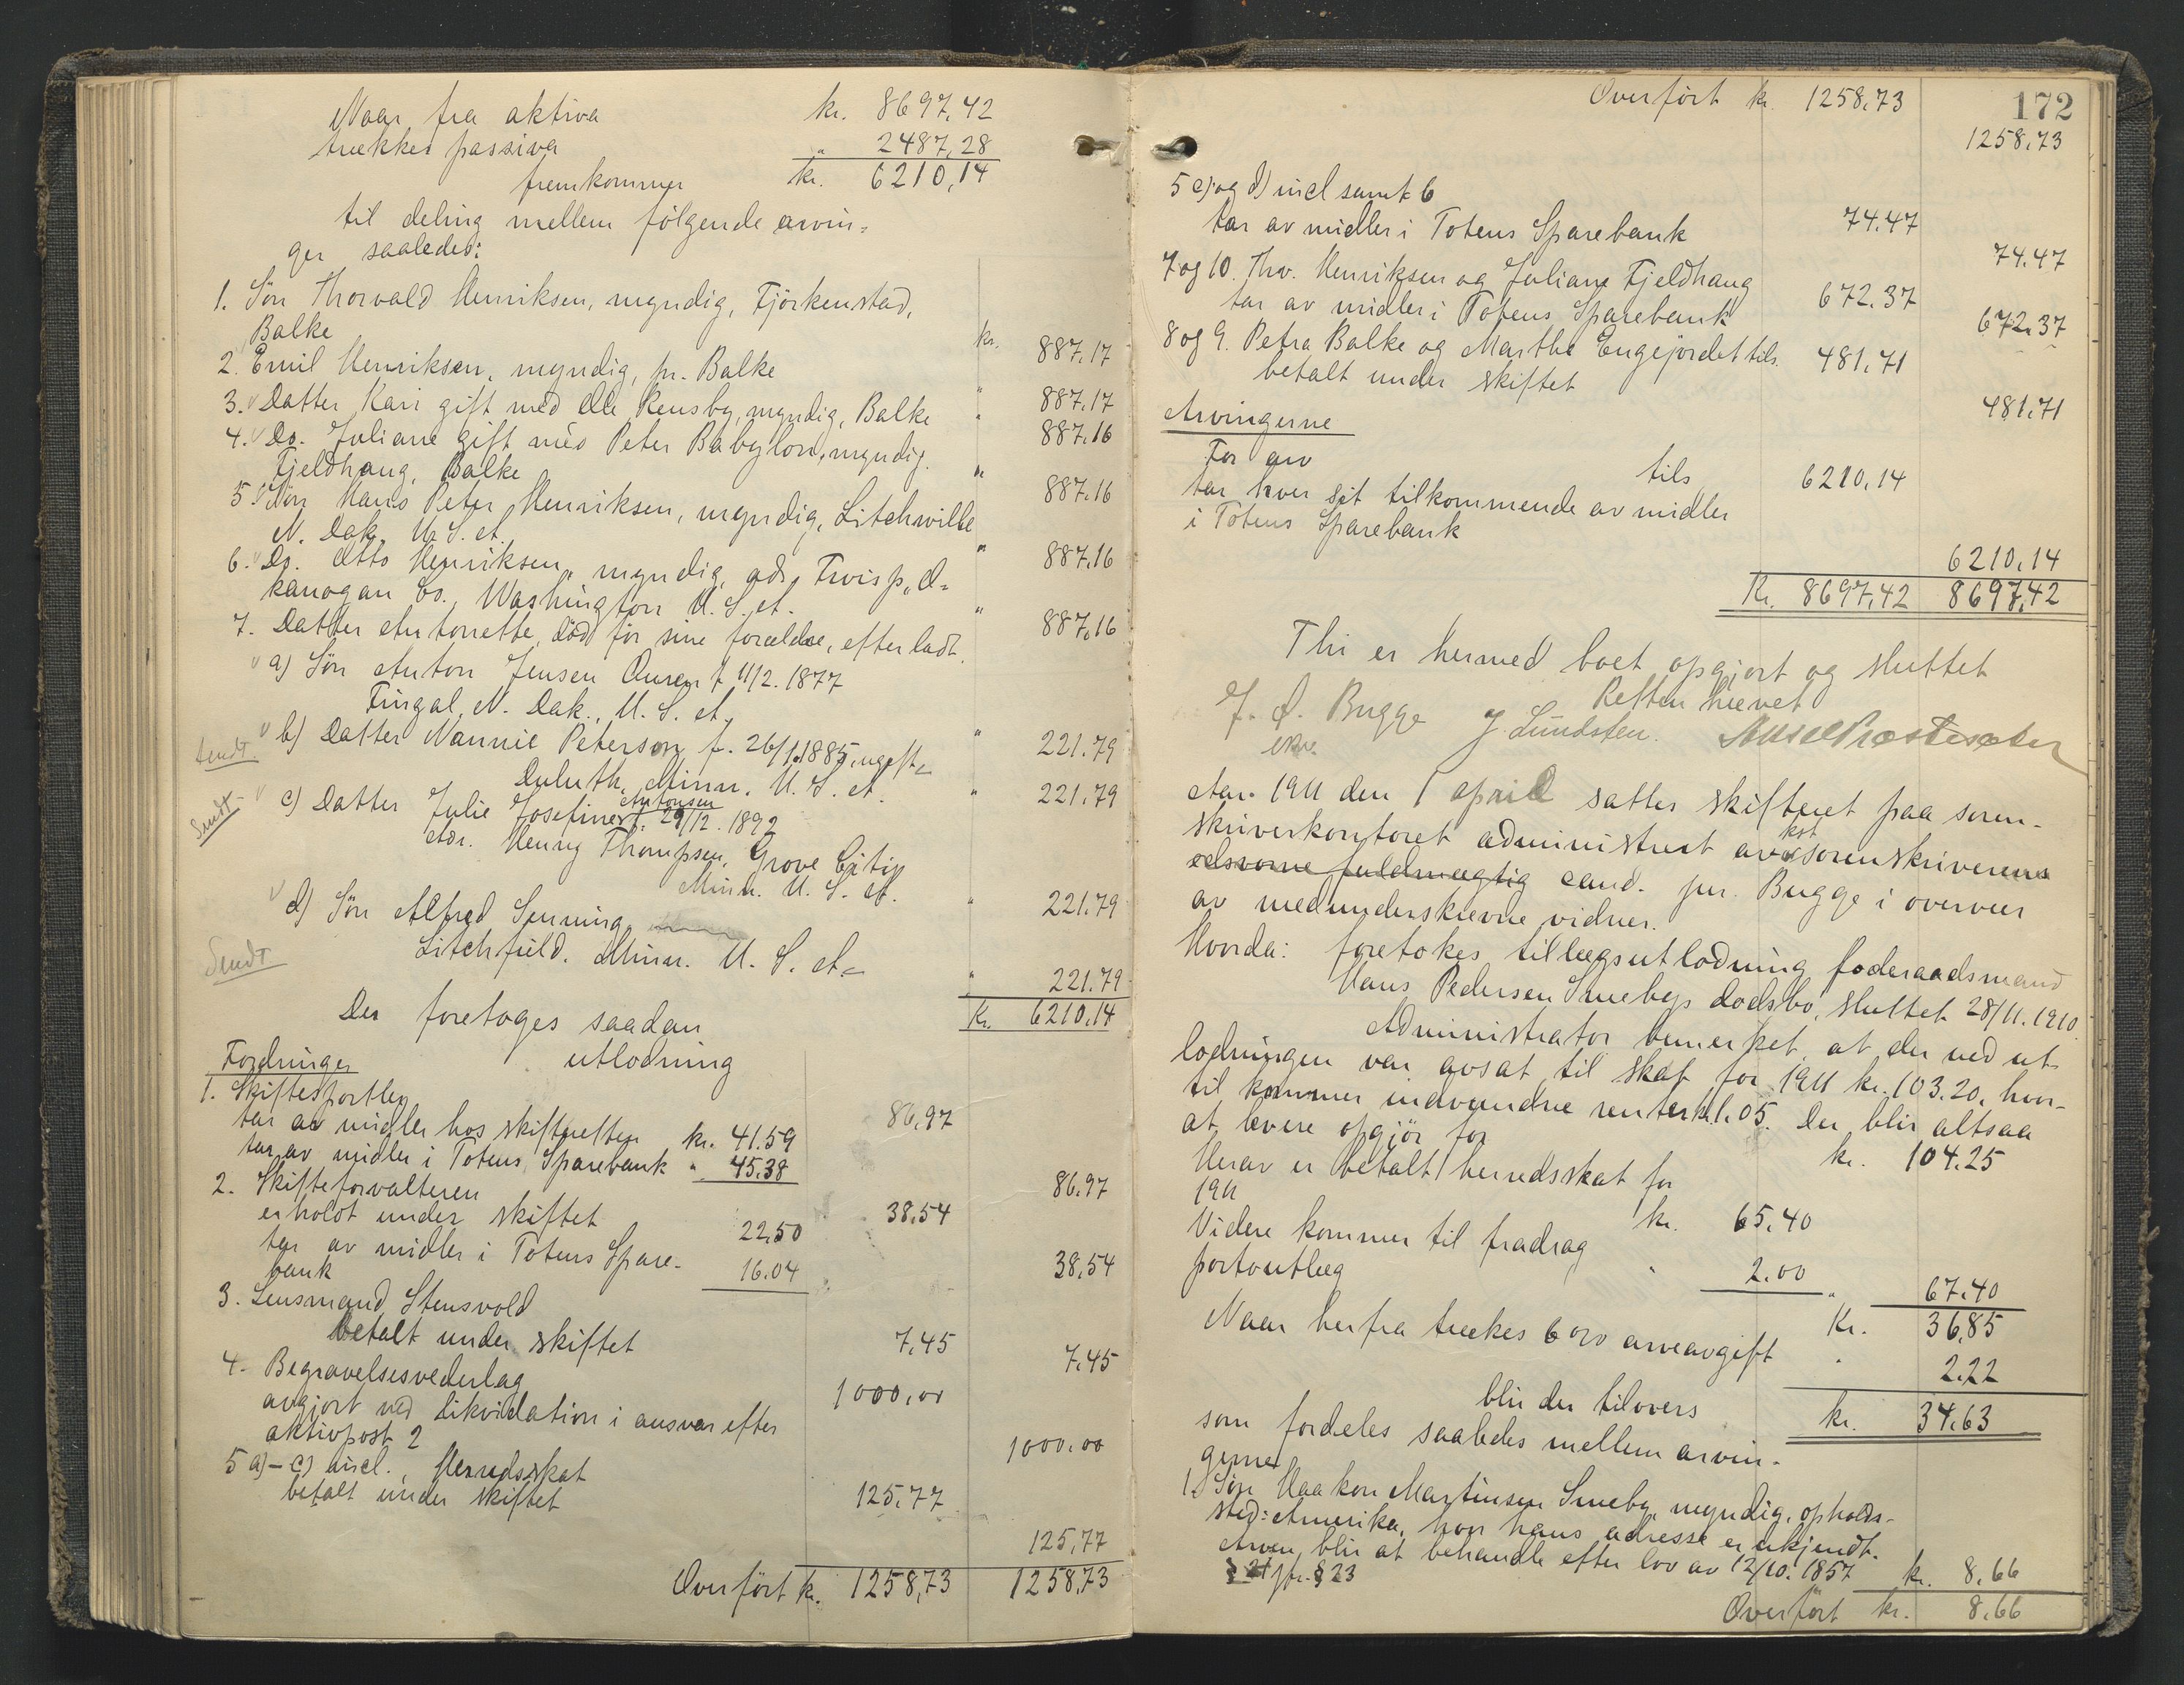 Naar fra aktiva kr. 8697,42
trækkes passiva " 2487,28
fremkommer kr. 6210,14
til deling mellem følgende arvin-
ger saaledes:
1. Søn Thorvald Henriksen, myndig, Fjörkenstad,
Balke kr. 887,17
2. Emil Henriksen, myndig, pr. Balke " 887,17
3. Datter Kari gift med Ole Rensby, myndig, Balke " 887,16
4. Do. Juliane gift med Peter Babylon, myndig.
Fjeldhaug, Balke " 887,16
5. Søn Hans Peter Henriksen, myndig, Litchville
N. Dak. U. S. A. " 887,16
6. Do. Otto Henriksen, myndig, adr. Twisp, O-
kanogan Co., Washington U. S. A. " 887,16
7. Datter Antonette, död för sine forældre, efterladt.
a) Søn Anton Jensen Onsen f 11/2. 1877
Fingal, N. Dak., U. S. A. " 221.79
Sendt. b) Datter Nannie Peterson f. 26/1.1885, ugift
Duluth, Minn. U. S. A. " 221.79
Sendt c) Datter Julie Josefine Antonsen f. 29/12. 1892
Adr. Henry Thompsen, Grove City
Minn. U. S. A. " 221.79
d) Søn Alfred Senning
Sendt Litchfield. Minn. U. S. A. " 221.79
Kr. 6210,14
Der foretages saadan
utlodning
Fordringer
1. Skiftesportler 86,97
tar av midler hos skifteretten kr. 41.59
tar av midler i Totens Sparebank " 45.38 86.97
2. Skifteforvalteren 38,54
erholdt under skiftet 22,50
tar av midler i Totens Spare-
bank 16.04 38,54
3. Lensmand Stensvold 7,45
betalt under skiftet 7,45
4. Begravelsesvederlag 1000,00
avgjort ved likvidation i ansvar efter
aktivpost 2 1000,00
5 a) - c) incl., Herredsskat 125,77
betalt under skiftet 125,77
Overført kr. 1258,73 1258,73
172
Overført kr. 1258,73 1258,73
5 c) og d) incl samt 6 74.47
tar av midler i Totens Sparebank 74.47
7 og 10. Thv. Henriksen og Juliane Fjeldhaug 672.37
tar av midler i Totens Sparebank 672.37
8 og 9. Petra Balke og Marthe Engejordet tils. 481,71
betalt under skiftet 481.71
Arvingerne
For arv tils 6210,14
tar hver sit tilkommende av midler
i Totens Sparebank 6210,14
Kr. 8697,42 8697,42
Thi er hermed boet opgjort og sluttet
Retten hævet
J. A. Bugge J Lundsten.
Aar 1911 den 1 april sattes skifteret paa soren-
skriverkontoret administrert av kst sorenskriverens
edsvorne fuldmægtig cand. jur. Bugge i overvær
av medunderskrevne vidner.
Hvorda: foretokes tillægsutlodning føderaadsmand
Hans Pedersen Smebys dødsbo, sluttet 28/11. 1910
Administrator bemerket, at der ved ut-
lodningen var avsat til skat for 1911 kr. 103.20, hvor-
til kommer indvundne renter kr. 1.05. Der blir altsaa
at levere opgjør for kr. 104.25
Herav er betalt herredsskat for
1911 kr. 65.40
Videre kommer til fradrag
portoutlæg " 2.00 " 67.40
Kr. 36,85
Naar herfra trækkes 6 % arveavgift " 2.22
blir der tilovers kr. 34.63
som fordeles saaledes mellem arvin-
gerne
1. Søn Haakon Martinsen Smeby, myndig, opholds-
sted: Amerika, hvor hans adresse er ukjendt.
Arven blir at behandle efter lov av 12/10. 1857
§ 21 jfr. § 23 kr. 8.66
Overført kr. 8.66